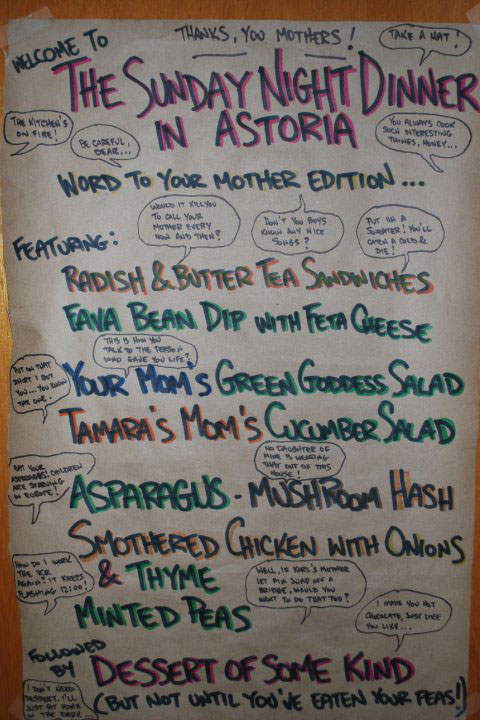 WELCOME TO
THANKS, YOU MOTHERS!
TAKE A HAT!
THE SUNDAY NIGHT DINNER
IN ASTORIA
THE KITCHEN'S
ON FIRE!
BE CAREFUL,
DEAR...
YOU ALWAYS COOK
SUCH INTERESTING
THINGS, HONEY...
WORD TO YOUR MOTHER EDITION...
WOULD IT KILL YOU
TO CALL YOUR
MOTHER EVERY
NOW AND THEN?
DON'T YOU BOYS
KNOW ANY NICE
SONGS?
PUT ON A
SWEATER! YOU'LL
CATCH A COLD &
DIE!
FEATURING:
RADISH & BUTTER TEA SANDWICHES
FAVA BEAN DIP WITH FETA CHEESE
THIS IS HOW YOU
TALK TO THE PERSON
WHO GAVE YOU LIFE?
PUT ON THAT
SHIRT I GOT
YOU... YOU KNOW
THE ONE.
YOUR MOM'S GREEN GODDESS SALAD
TAMARA'S MOM'S CUCUMBER SALAD
EAT YOUR
ASPARAGUS! CHILDREN
ARE STARVING
IN EUROPE!
NO DAUGHTER OF
MINE IS WEARING
THAT OUT OF THIS
HOUSE!
ASPARAGUS - MUSHROOM HASH
SMOTHERED CHICKEN WITH ONIONS
& THYME
HOW DO I WORK
THE VCR
AGAIN? IT KEEPS
FLASHING 12:00!
WELL, IF KARL'S MOTHER
LET HIM JUMP OFF A
BRIDGE, WOULD YOU
WANT TO DO THAT TOO?
MINTED PEAS
I MADE YOU HOT
CHOCOLATE, JUST LIKE
YOU LIKE...
FOLLOWED
BY
DESSERT OF SOME KIND
(BUT NOT UNTIL YOU'VE EATEN YOUR PEAS!)
I DON'T NEED
DESSERT. I'LL
JUST SIT HERE
IN THE DARK...